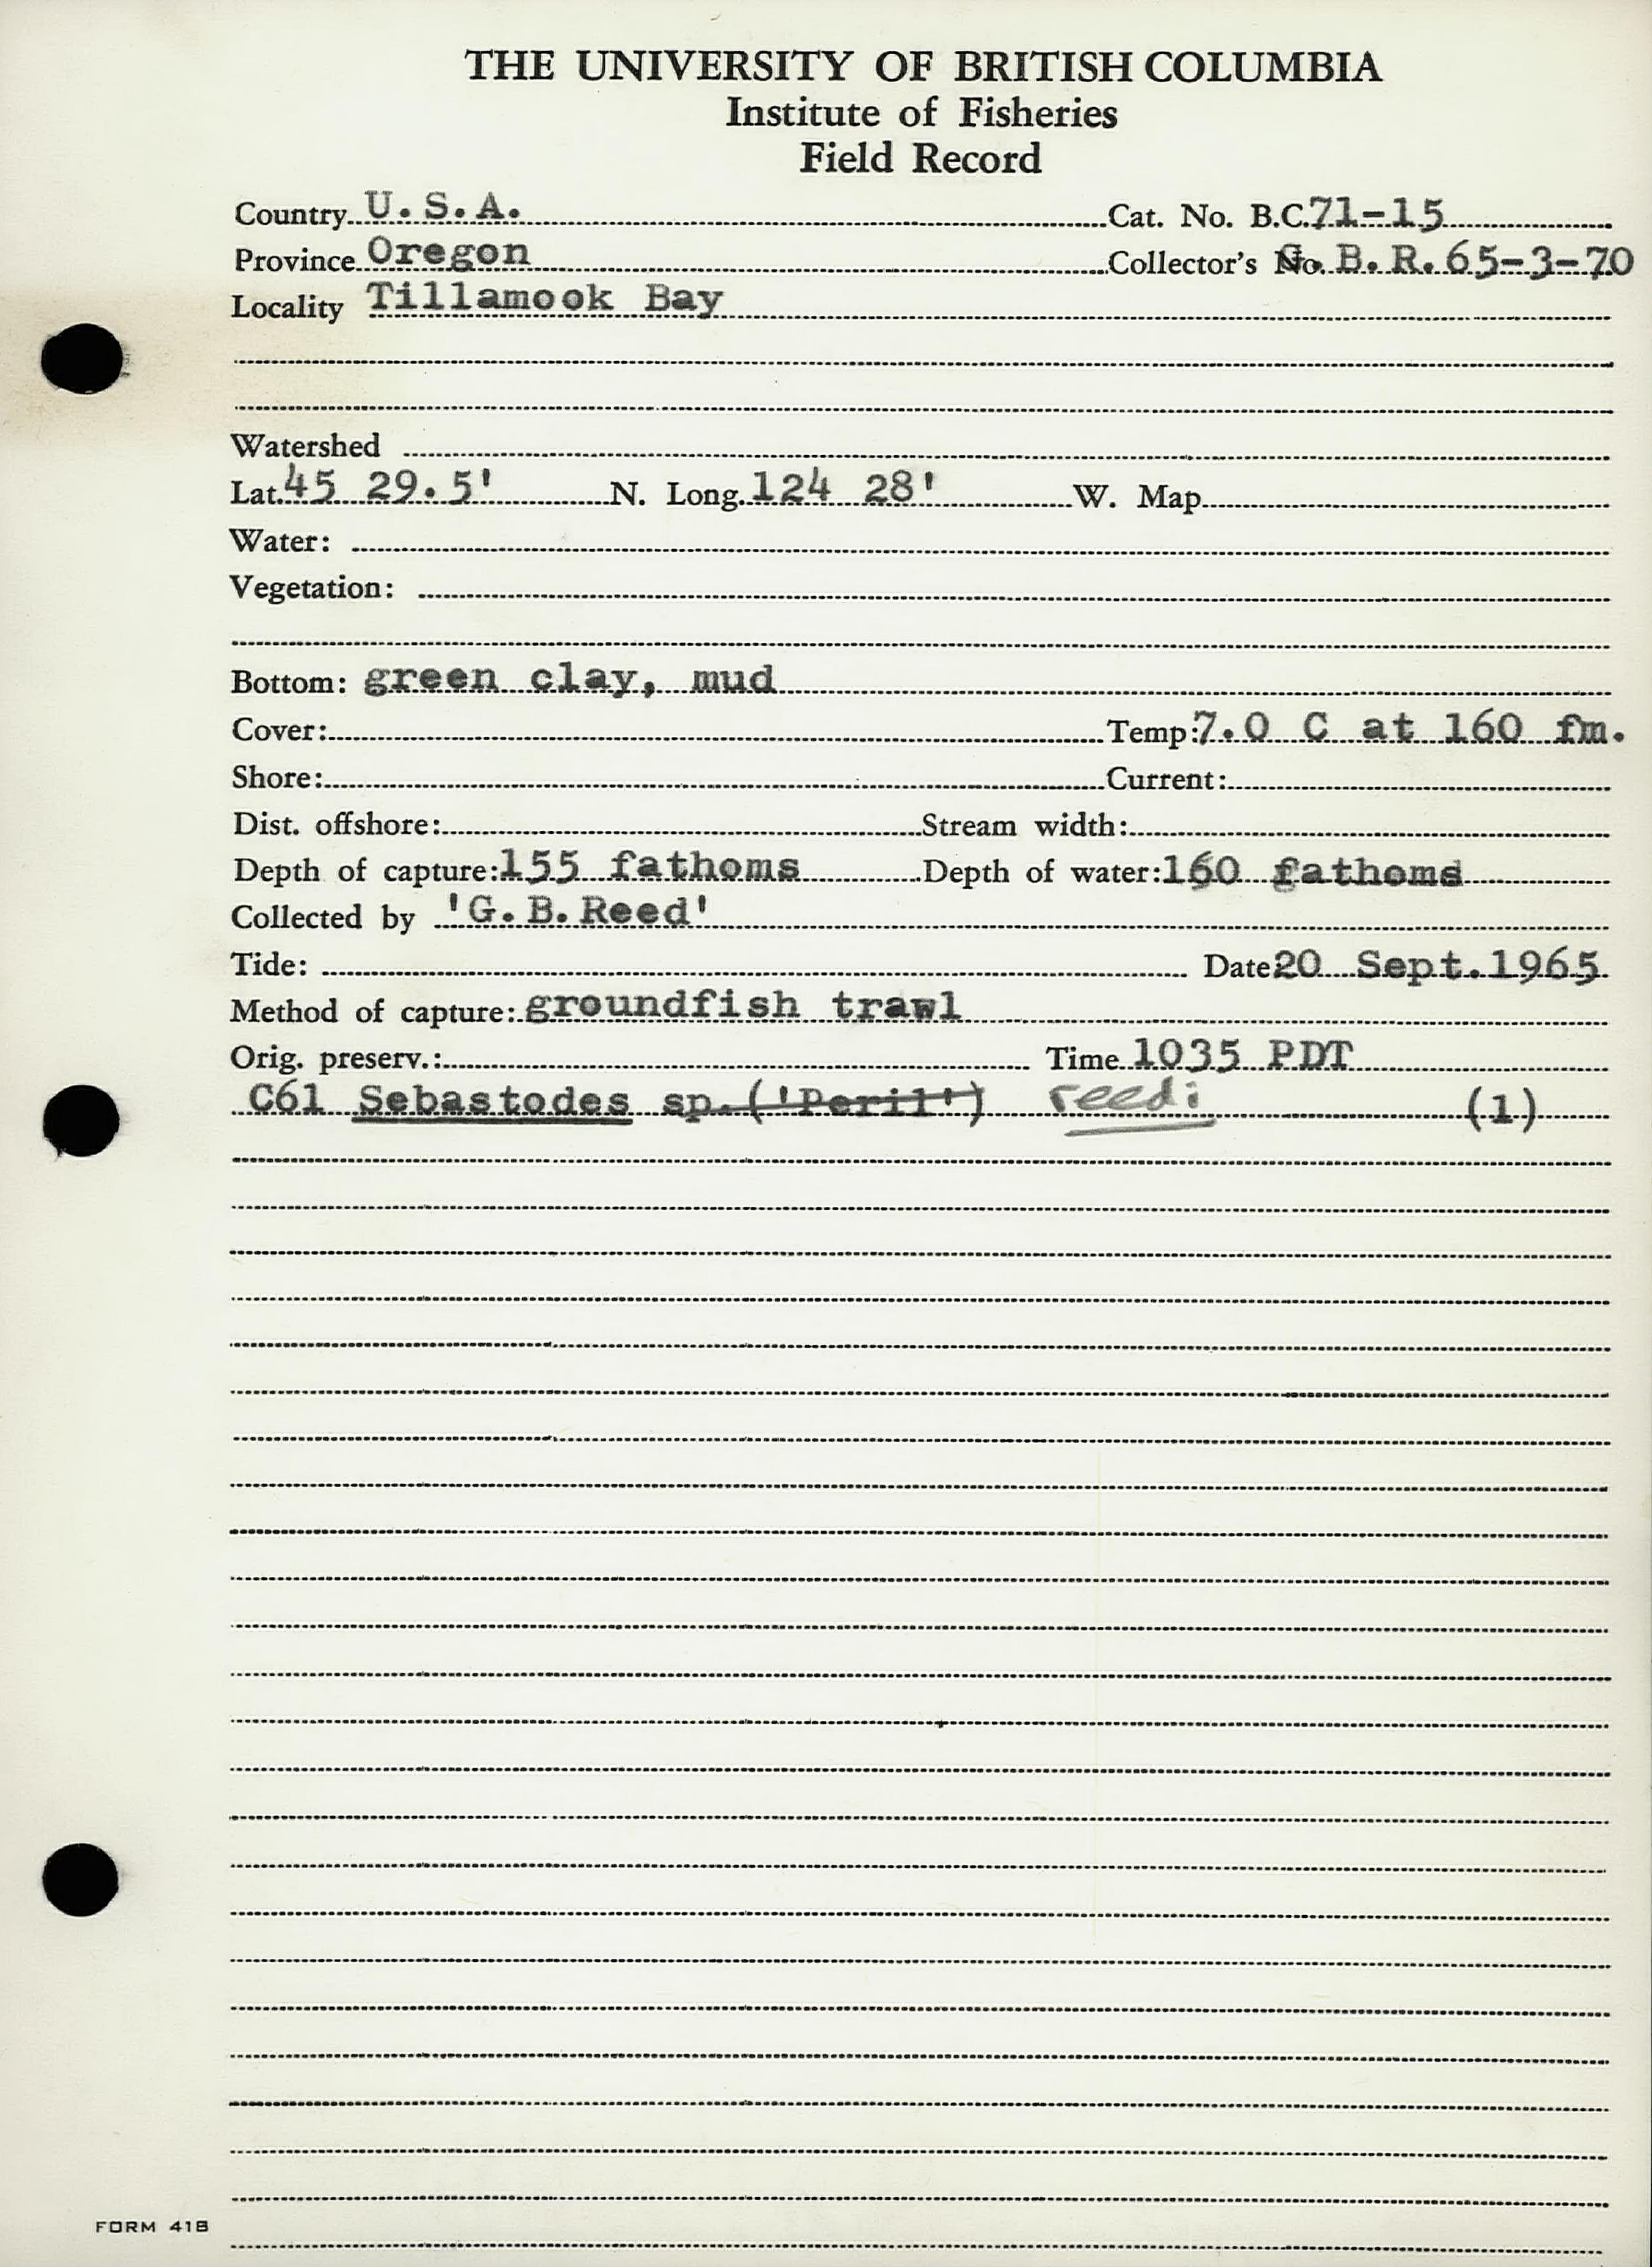 THE UNIVERSITY OF BRITISH COLUMBIA
Institute of Fisheries
Field Record
Country U.S.A. Cat. No. B.C. 71-15
Province Oregon Collector's No. G. B. R. 65-3-70
Locality Tillamook Bay
Watershed
Lat. 45 29.5' N. Long. 124 28' W. Map
Water:
Vegetation:
Bottom: green clay, mud
Cover: Temp: 7.0 C at 160 fm.
Shore: Current:
Dist. offshore: Stream width:
Depth of capture: 155 fathoms Depth of water: 160 fathoms
Collected by 'G.B.Reed'
Tide: Date 20 Sept. 1965
Method of capture: groundfish trawl
Orig. preserv.: Time 1035 PDT
C61 Sebastodes sp. ('Peril') reedi (1)
FORM 41B